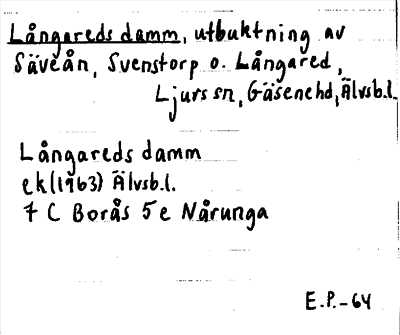 Långareds damm, utbuktning av
Säveån, Svenstorp o. Långared,
Ljurs sn, Gäsenehd, Älvsb.l.
Långareds damm
ek(1963) Älvsb.l.
7 C Borås 5e Nårunga
E.P.-64